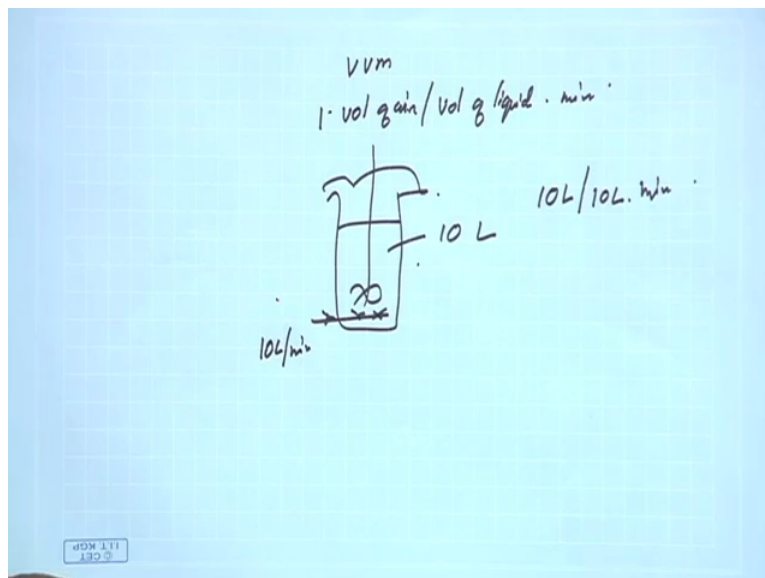 VVm
1. vol q air / vol q liquid . min .
10L/10L. min .
10 L
10L/min
© CET
I.I.T. KGP